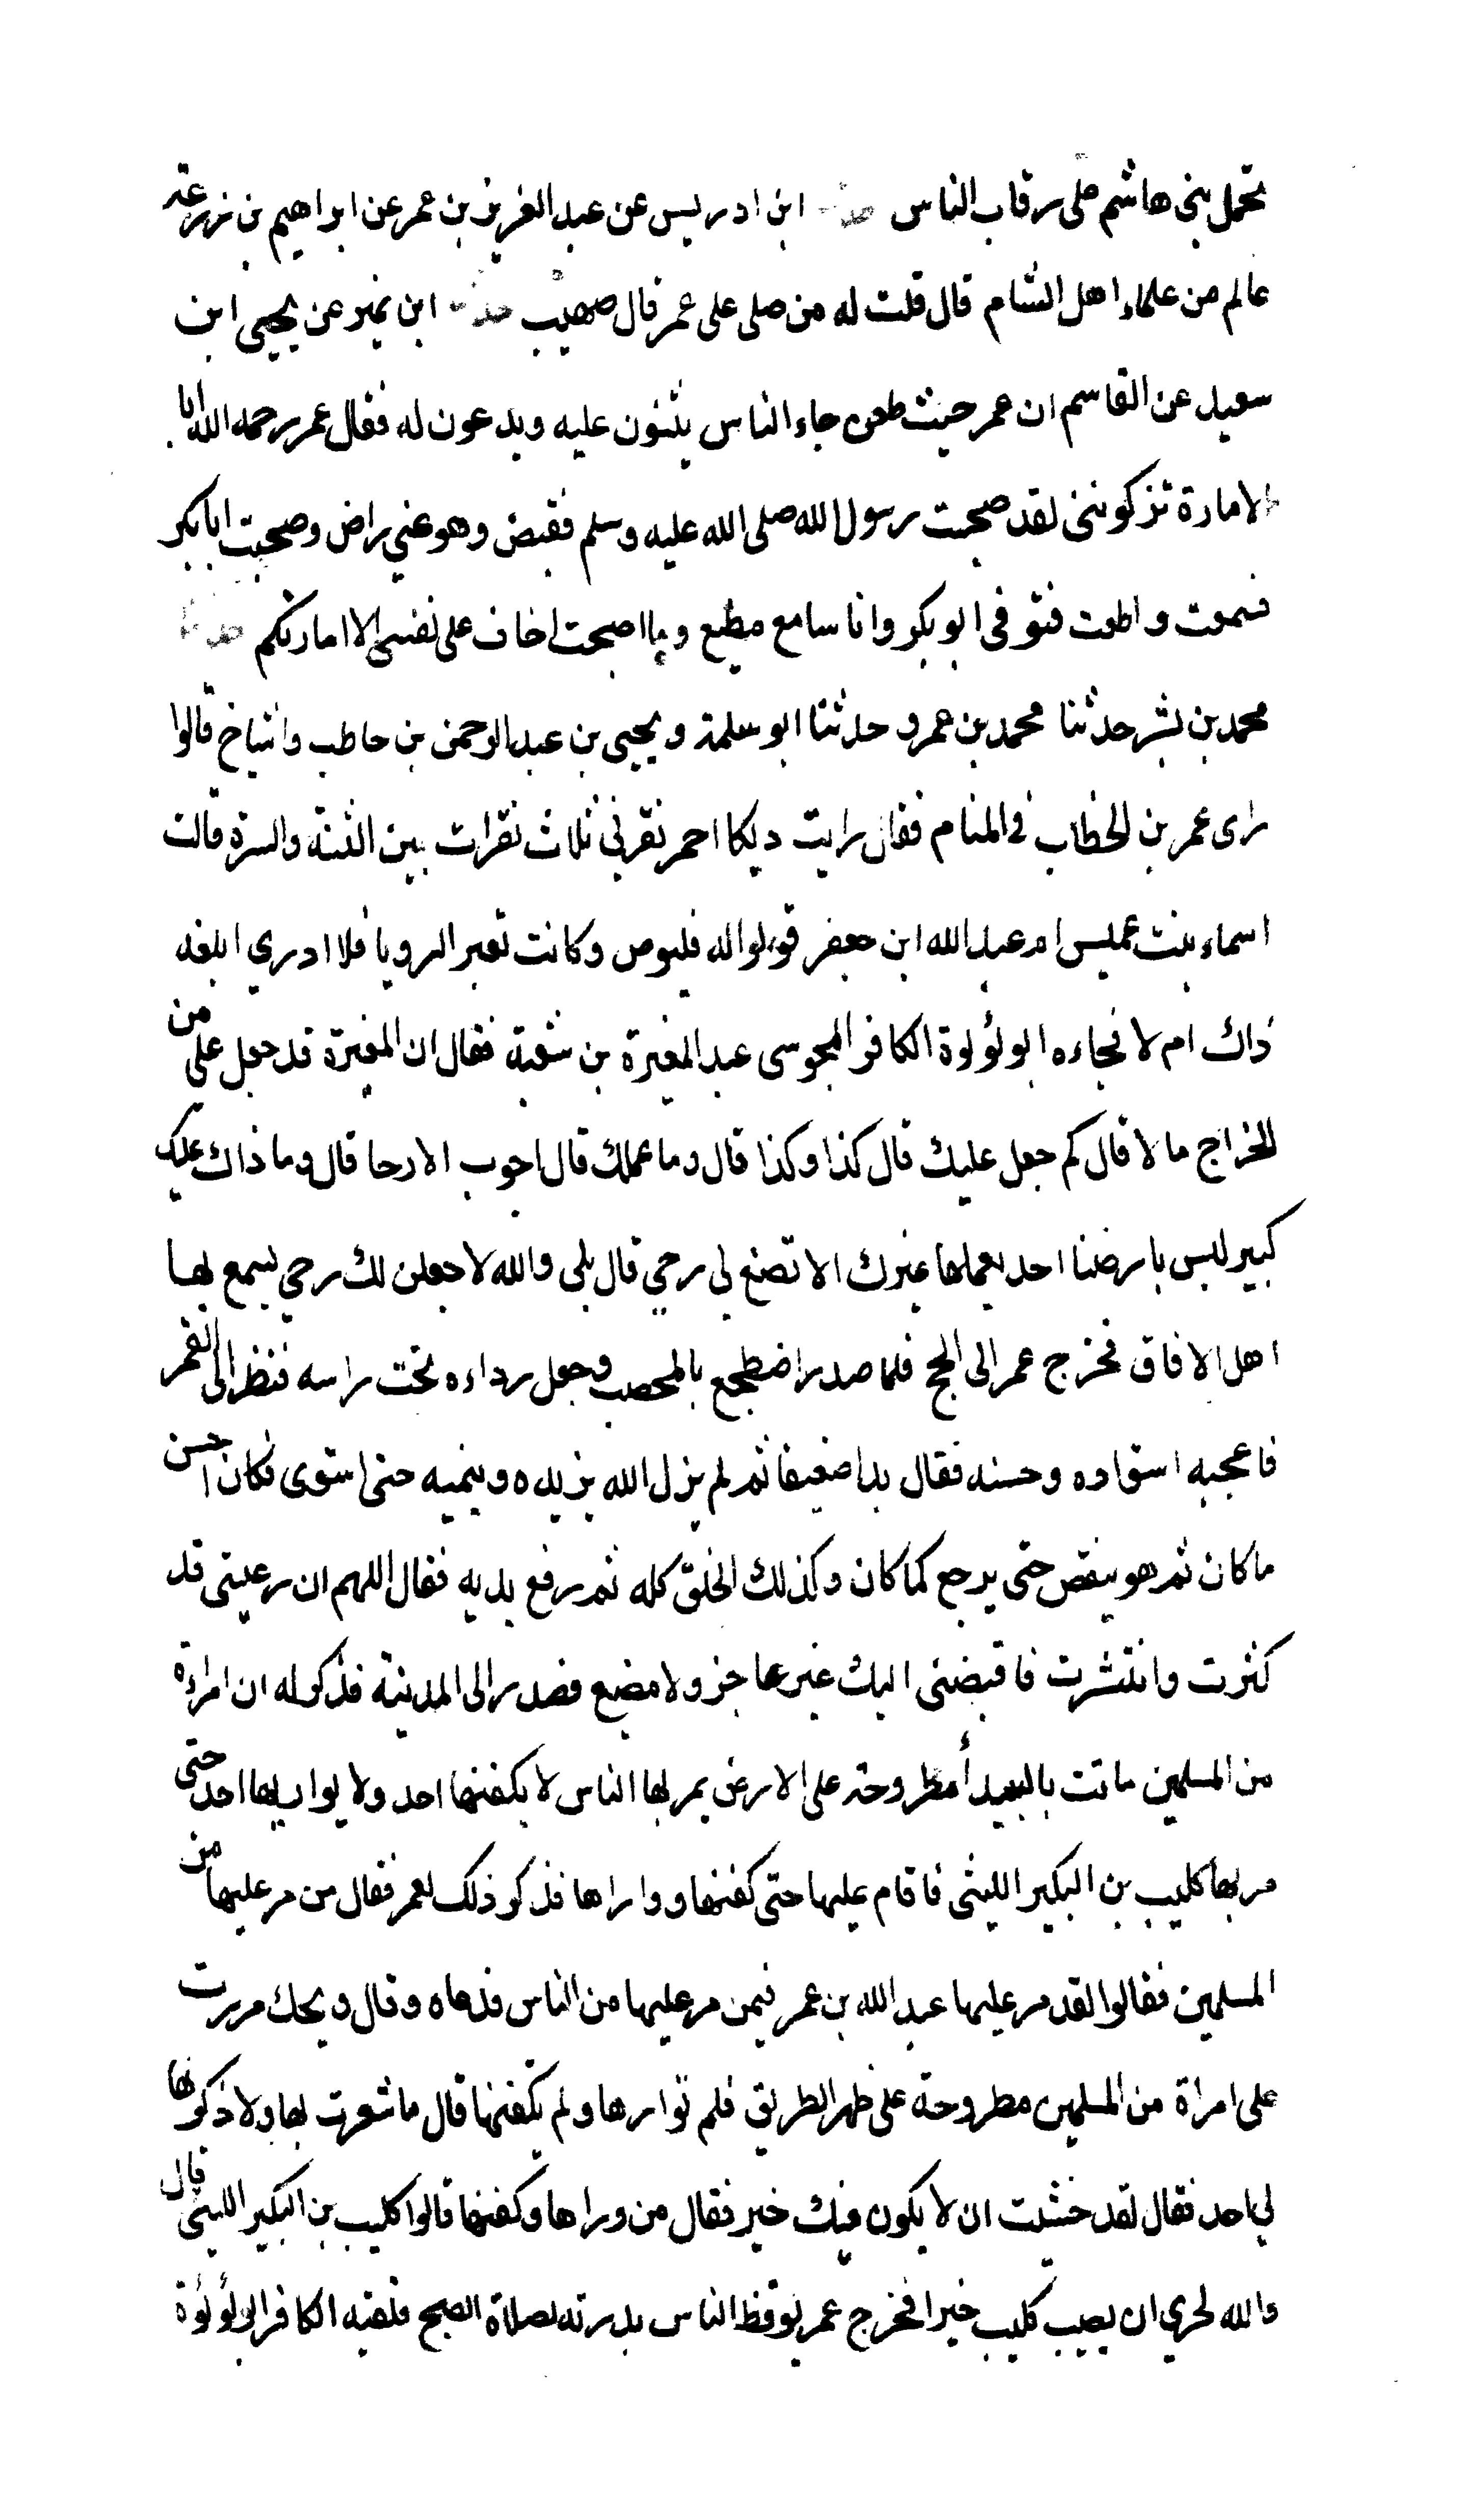 تحمل بني هاشم على رقاب الناس حدثنا ابن ادريس عن عبد العزيز بن عمر عن ابراهيم بن زرعة
عالم من علماء اهل الشام قال قلت له من صلى على عمر قال صهيب حدثنا ابن نمير عن يحيى ابن
سعيد عن القاسم ان عمر حيث طعن جاء الناس يثنون عليه ويدعون له فقال عمر رحمه الله أبا
لامارة تزكونني لقد صحبت رسول الله صلى الله عليه وسلم فقبض وهو عني راض وصحبت ابا بكر
فسمعت واطعت فتوفي ابو بكر وانا سامع مطيع وما اصبحت اخاف على نفسي الا امارتكم حدثنا
محمد بن بشر حدثنا محمد بن عمرو حدثنا ابو سلمة ويحيى بن عبد الرحمن بن حاطب واشياخ قالوا
راى عمر بن الخطاب في المنام فقال رايت ديكا احمر نقرني ثلاث نقرات بين الثنة والسرة قالت
اسماء بنت عميس ام عبد الله ابن جعفر قولوا له فليوص وكانت تعبر الرويا فلا ادري ابلغه
ذاك ام لا فجاءه ابو لؤلوة الكافر المجوسى عبد المغيرة بن شعبة فقال ان المغيرة قد جعل علي من
الخراج ما لا قال كم جعل عليك قال كذا وكذا قال وما عملك قال اجوب الارحا قال وما ذاك عليك
كبير ليس بارضنا احد يعملها غيرك الا تصنع لي رحي قال بلى والله لاجعلن لك رحي يسمع بها
اهل الافاق فخرج عمر الى الحج فلما صدر اضطجع بالمحصب وجعل رداءه تحت راسه فنظر الى القمر
فاعجبه استواده وحسنه فقال بدا ضعيفا ثم لم يزل الله يزيده وينميه حتى استوى فكان احسن
ما كان ثم هو ينقص حتى يرجع كما كان وكذلك الخلق كله ثم رفع يديه فقال اللهم ان رعيتي قد
كثرت وانتشرت فاقبضني اليك غير عاجز ولا مضيع فصدر الى المدينة فذكر له ان امراة
من المسلمين ماتت بالبيدأ مطروحة على الارض يمر بها الناس لا يكفنها احد ولا يواريها احد حتى
مر بها كليب بن البكير الليثي فاقام عليها حتى كفنها وواراها فذكر ذلك لعمر فقال من مر عليها من
المسلمين فقالوا لقد مر عليها عبد الله بن عمر فيمن مر عليها من الناس فدعاه وقال ويحك مررت
على امراة من المسلمين مطروحة على ظهر الطريق فلم توارها ولم تكفنها قال ما شعرت بها ولا ذكرها
لي احد فقال لقد خشيت ان لا يكون فيك خير فقال من وراها وكفنها قالوا كليب بن البكير الليثي قال
والله لحري ان يصيب كليب خيرا فخرج عمر يوقظ الناس بدرته لصلاة الصبح فلقيه الكافر ابو لؤلؤة